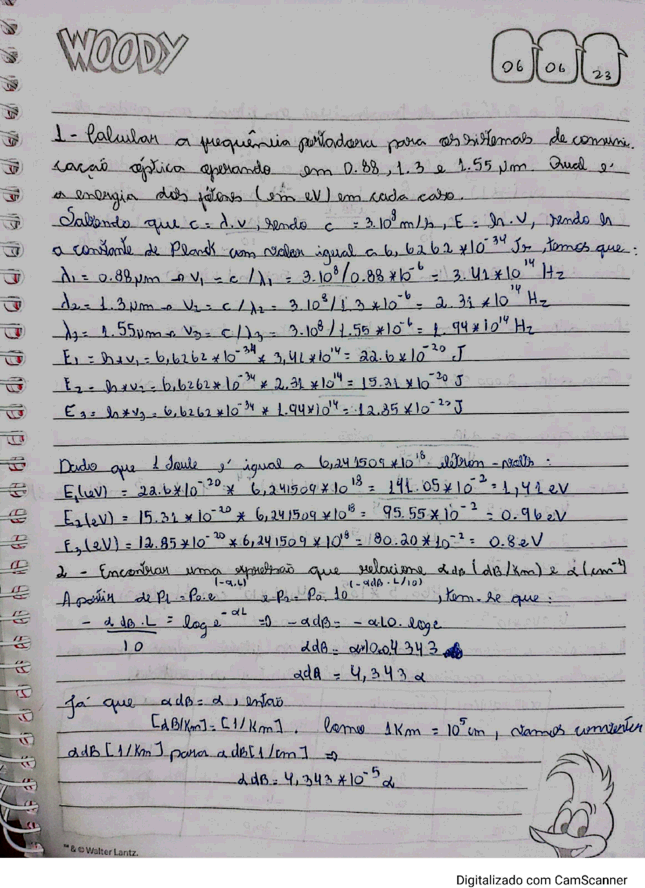 WOODY
06 06 23
1 - Calcular a frequência portadora para os sistemas de comuni.
cação óptica operando em 0.88, 1.3 e 1.55 μm. Qual é
a energia dos fótons (em eV) em cada caso.
Sabendo que c = λ.ν, sendo c = 3.10⁸ m/s, E = h.ν, sendo h
a constante de Planck com valor igual a 6,6262 x 10⁻³⁴ Js, temos que:
λ₁ = 0.88μm → ν₁ = c / λ₁ = 3.10⁸/0.88 x 10⁻⁶ = 3.41 x 10¹⁴ Hz
λ₂ = 1.3μm → ν₂ = c / λ₂ = 3.10⁸/1.3 x 10⁻⁶ = 2.31 x 10¹⁴ Hz
λ₃ = 1.55μm → ν₃ = c / λ₃ = 3.10⁸/1.55 x 10⁻⁶ = 1.94 x 10¹⁴ Hz
E₁ = h x ν₁ = 6,6262 x 10⁻³⁴ x 3,41 x 10¹⁴ = 22.6 x 10⁻²⁰ J
E₂ = h x ν₂ = 6,6262 x 10⁻³⁴ x 2.31 x 10¹⁴ = 15.31 x 10⁻²⁰ J
E₃ = h x ν₃ = 6,6262 x 10⁻³⁴ x 1.94 x 10¹⁴ = 12.85 x 10⁻²⁰ J
Dado que 1 Joule é igual a 6,241509 x 10¹⁸ elétron-volts:
E₁(eV) = 22.6 x 10⁻²⁰ x 6,241509 x 10¹⁸ = 141.05 x 10⁻² = 1,41 eV
E₂(eV) = 15.31 x 10⁻²⁰ x 6,241509 x 10¹⁸ = 95.55 x 10⁻² = 0.96 eV
E₃(eV) = 12.85 x 10⁻²⁰ x 6,241509 x 10¹⁸ = 80.20 x 10⁻² = 0.8 eV
2 - Encontrar uma expressão que relacione αdB (dB/km) e α (cm⁻¹)
A partir de PL = P0.e^(-α.L) e PL = P0.10^(-αdB.L/10), tem-se que:
- αdB.L / 10 = log e^-αL => -αdB = -α10.log e
αdB = α10.0.4343
αdB = 4,343 α
Já que αdB = α, então
[dB/Km] = [1/Km]. Como 1Km = 10⁵ cm, vamos converter
αdB [1/Km] para αdB [1/cm] =>
αdB = 4,343 x 10⁻⁵ α
™ & © Walter Lantz.
Digitalizado com CamScanner